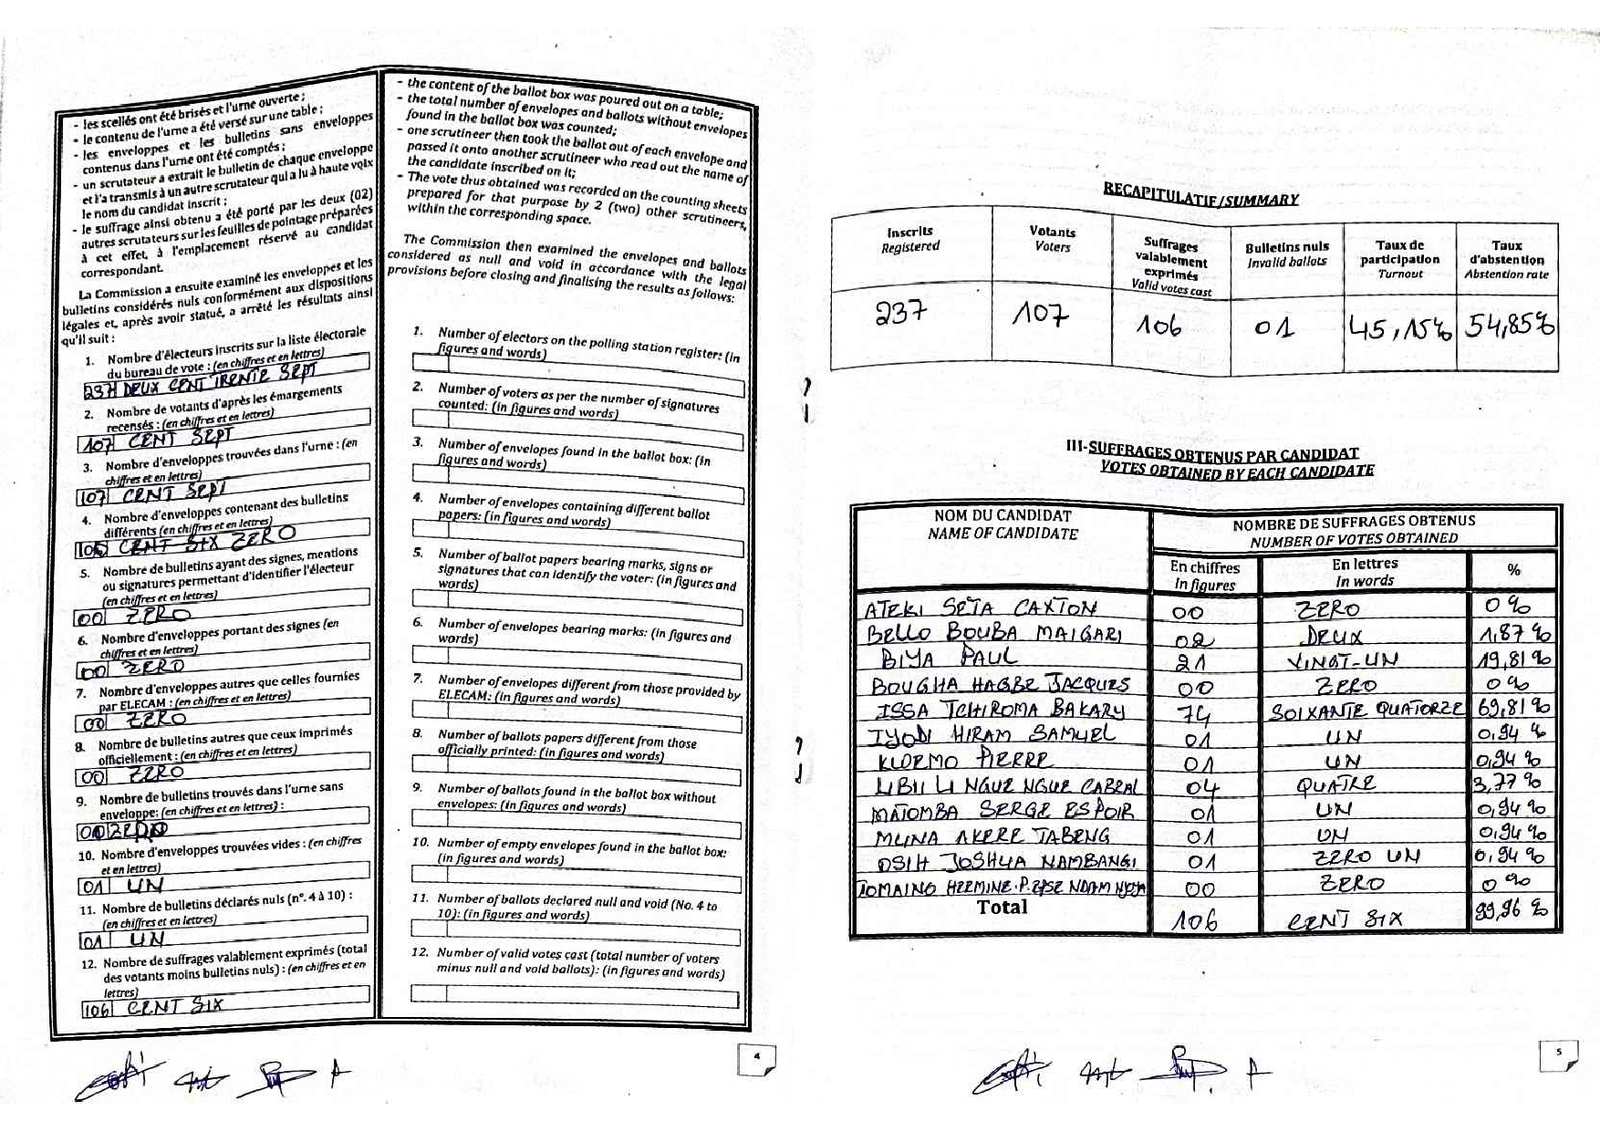 - les scellés ont été brisés et l'urne ouverte ;
- le contenu de l'urne a été versé sur une table ;
- les enveloppes et les bulletins sans enveloppes
contenus dans l'urne ont été comptés ;
- un scrutateur a extrait le bulletin de chaque enveloppe
et l'a transmis à un autre scrutateur qui a lu à haute voix
le nom du candidat inscrit ;
- le suffrage ainsi obtenu a été porté par les deux (02)
autres scrutateurs sur les feuilles de pointage préparées
à cet effet, à l'emplacement réservé au candidat
correspondant.
La Commission a ensuite examiné les enveloppes et les
bulletins considérés nuls conformément aux dispositions
légales et, après avoir statué, a arrêté les résultats ainsi
qu'il suit :
1. Nombre d'électeurs inscrits sur la liste électorale
du bureau de vote : (en chiffres et en lettres)
237 DEUX CENT TRENTE SEPT
2. Nombre de votants d'après les émargements
recensés : (en chiffres et en lettres)
107 CENT SEPT
3. Nombre d'enveloppes trouvées dans l'urne : (en
chiffres et en lettres)
107 CENT SEPT
4. Nombre d'enveloppes contenant des bulletins
différents (en chiffres et en lettres)
CENT SIX ZERO
5. Nombre de bulletins ayant des signes, mentions
ou signatures permettant d'identifier l'électeur
(en chiffres et en lettres)
00 ZERO
6. Nombre d'enveloppes portant des signes (en
chiffres et en lettres)
00 ZERO
7. Nombre d'enveloppes autres que celles fournies
par ELECAM : (en chiffres et en lettres)
00 ZERO
8. Nombre de bulletins autres que ceux imprimés
officiellement : (en chiffres et en lettres)
00 ZERO
9. Nombre de bulletins trouvés dans l'urne sans
enveloppe: (en chiffres et en lettres) :
00 ZERO
10. Nombre d'enveloppes trouvées vides : (en chiffres
et en lettres)
01 UN
11. Nombre de bulletins déclarés nuls (n°. 4 à 10) :
(en chiffres et en lettres)
01 UN
12. Nombre de suffrages valablement exprimés (total
des votants moins bulletins nuls) : (en chiffres et en
lettres)
106 CENT SIX
- the content of the ballot box was poured out on a table;
- the total number of envelopes and ballots without envelopes
found in the ballot box was counted;
- one scrutineer then took the ballot out of each envelope and
passed it onto another scrutineer who read out the name of
the candidate inscribed on it;
- The vote thus obtained was recorded on the counting sheets
prepared for that purpose by 2 (two) other scrutineers,
within the corresponding space.
The Commission then examined the envelopes and ballots
considered as null and void in accordance with the legal
provisions before closing and finalising the results as follows:
1. Number of electors on the polling station register: (in
figures and words)
2. Number of voters as per the number of signatures
counted: (in figures and words)
3. Number of envelopes found in the ballot box: (in
figures and words)
4. Number of envelopes containing different ballot
papers: (in figures and words)
5. Number of ballot papers bearing marks, signs or
signatures that can identify the voter: (in figures and
words)
6. Number of envelopes bearing marks: (in figures and
words)
7. Number of envelopes different from those provided by
ELECAM: (in figures and words)
8. Number of ballots papers different from those
officially printed: (in figures and words)
9. Number of ballots found in the ballot box without
envelopes: (in figures and words)
10. Number of empty envelopes found in the ballot box:
(in figures and words)
11. Number of ballots declared null and void (No. 4 to
10): (in figures and words)
12. Number of valid votes cast (total number of voters
minus null and void ballots): (in figures and words)
4
RECAPITULATIF/SUMMARY
Inscrits Registered | Votants Voters | Suffrages valablement exprimés Valid votes cast | Bulletins nuls Invalid ballots | Taux de participation Turnout | Taux d'abstention Abstention rate
237 107 106 01 45,15% 54,85%
III-SUFFRAGES OBTENUS PAR CANDIDAT
VOTES OBTAINED BY EACH CANDIDATE
NOM DU CANDIDAT NOMBRE DE SUFFRAGES OBTENUS
NAME OF CANDIDATE NUMBER OF VOTES OBTAINED
En chiffres En lettres %
In figures In words
ATEKI SETA CAXTON 00 ZERO 0%
BELLO BOUBA MAIGARI 02 DEUX 1,87%
BIYA PAUL 21 VINGT-UN 19,81%
BOUGHA HAGBE JACQUES 00 ZERO 0%
ISSA TCHIROMA BAKARY 74 SOIXANTE QUATORZE 69,81%
IYODI HIRAM SAMUEL 01 UN 0,94%
KUOEMO PIERRE 01 UN 0,94%
LIBII LI NGUE NGUE CABRAL 04 QUATRE 3,77%
MATOMBA SERGE ESPOIR 01 UN 0,94%
MUNA AKERE TABENG 01 UN 0,94%
OSIH JOSHUA NAMBANGI 01 ZERO UN 0,94%
TOMAINO HERMINE P. NDAM NJOYA 00 ZERO 0%
Total 106 CENT SIX 99,96%
5